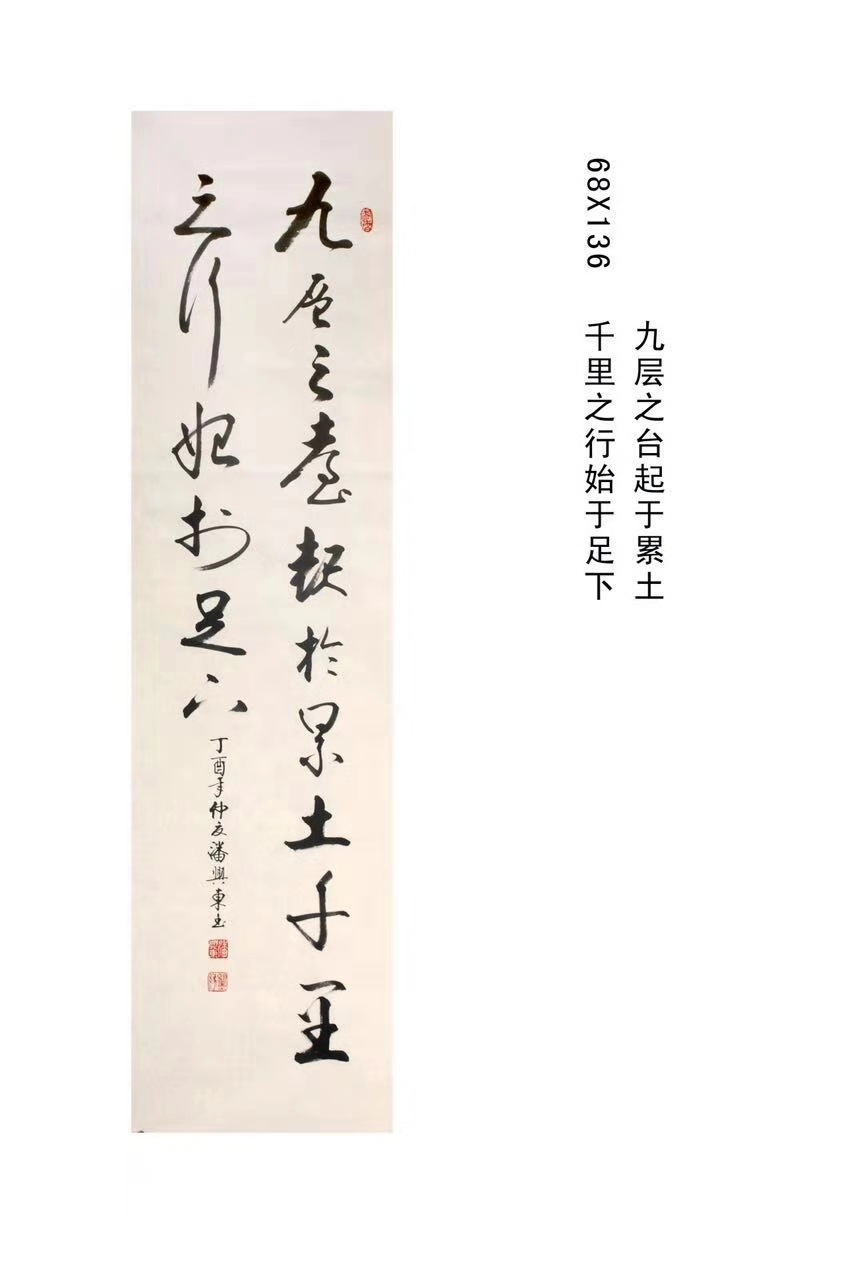 九层之臺起於累土千里
之行始於足下
丁酉年仲夏潘興東书
68X136
九层之台起于累土
千里之行始于足下